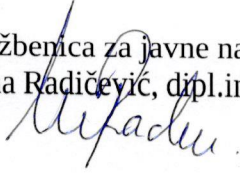 žbenica za javne na
a Radičević, dipl.in